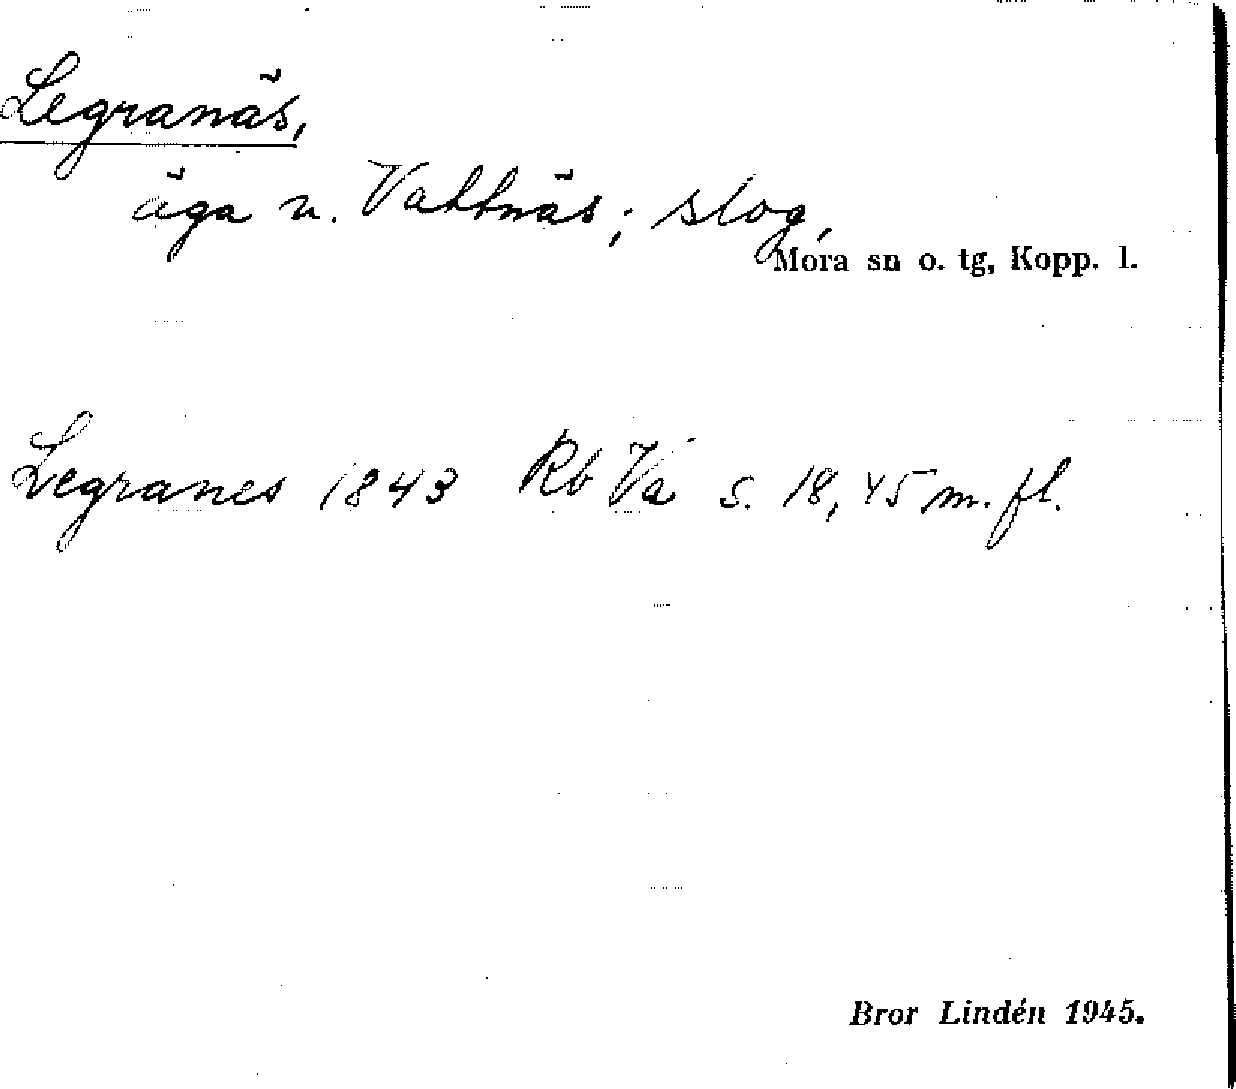 Legranäs,
äga n. Vattnäs; slog,
Mora sn o. tg, Kopp. l.
Legranes 1843 Rb Vä s. 18, 45 m. fl.
Bror Lindén 1945.